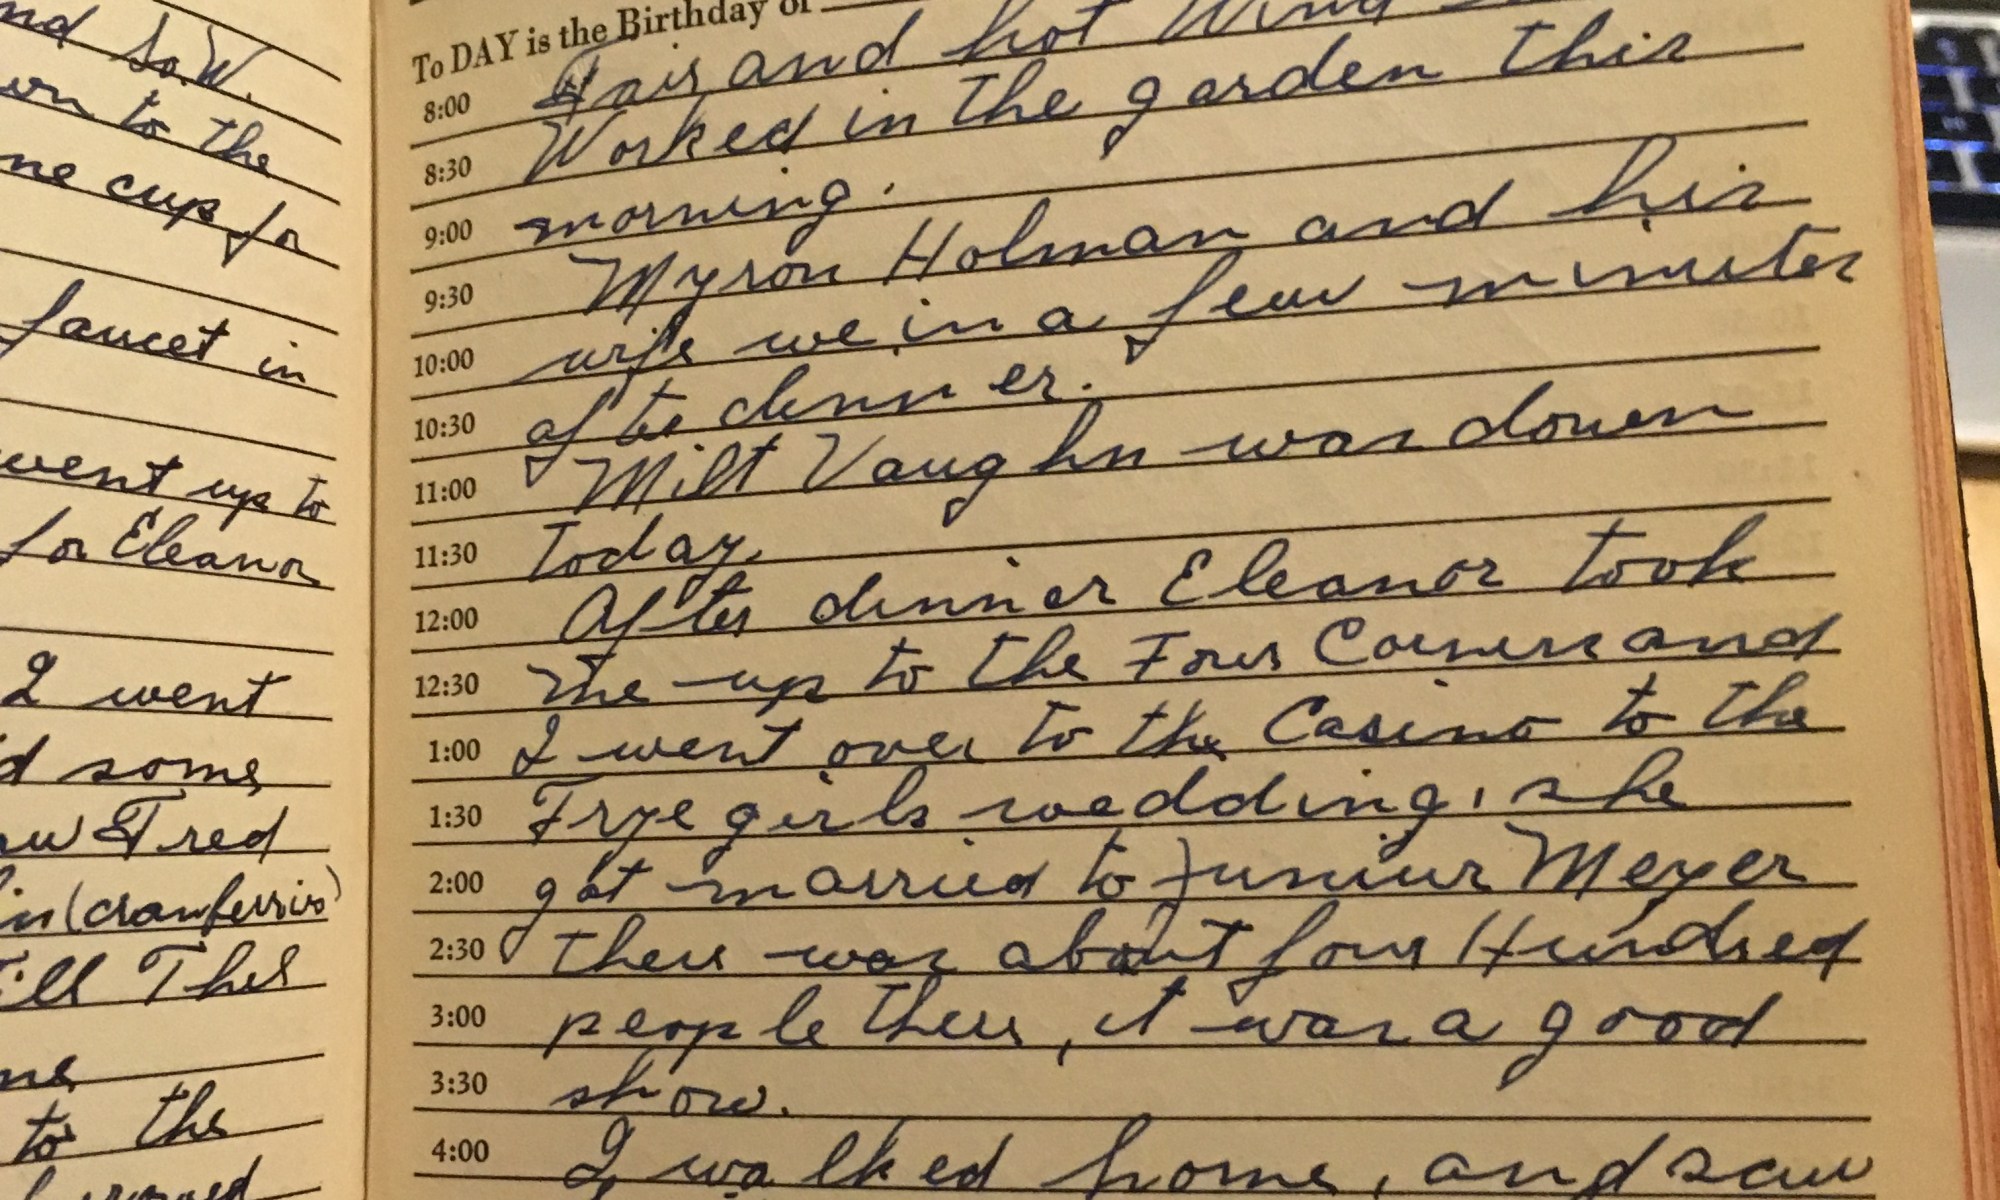 nd So. W.
to the
me cup for
faucet in
went up to
for Eleanor
I went
d some
Fred
in (cranberries)
Thel
me
to the
To DAY is the Birthday of
8:00 Fair and hot Wind
8:30 Worked in the garden this
9:00 morning.
9:30 Myron Holman and his
10:00 wife we in a few minutes
10:30 afte dinner.
11:00 Milt Vaughn was down
11:30 today.
12:00 After dinner Eleanor took
12:30 me up to the Four Corners and
1:00 I went over to the Casino to the
1:30 Frye girls wedding, she
2:00 got married to Juniur Meyer
2:30 there was about four Hundred
3:00 people there, it was a good
3:30 show.
4:00 I walked home, and saw